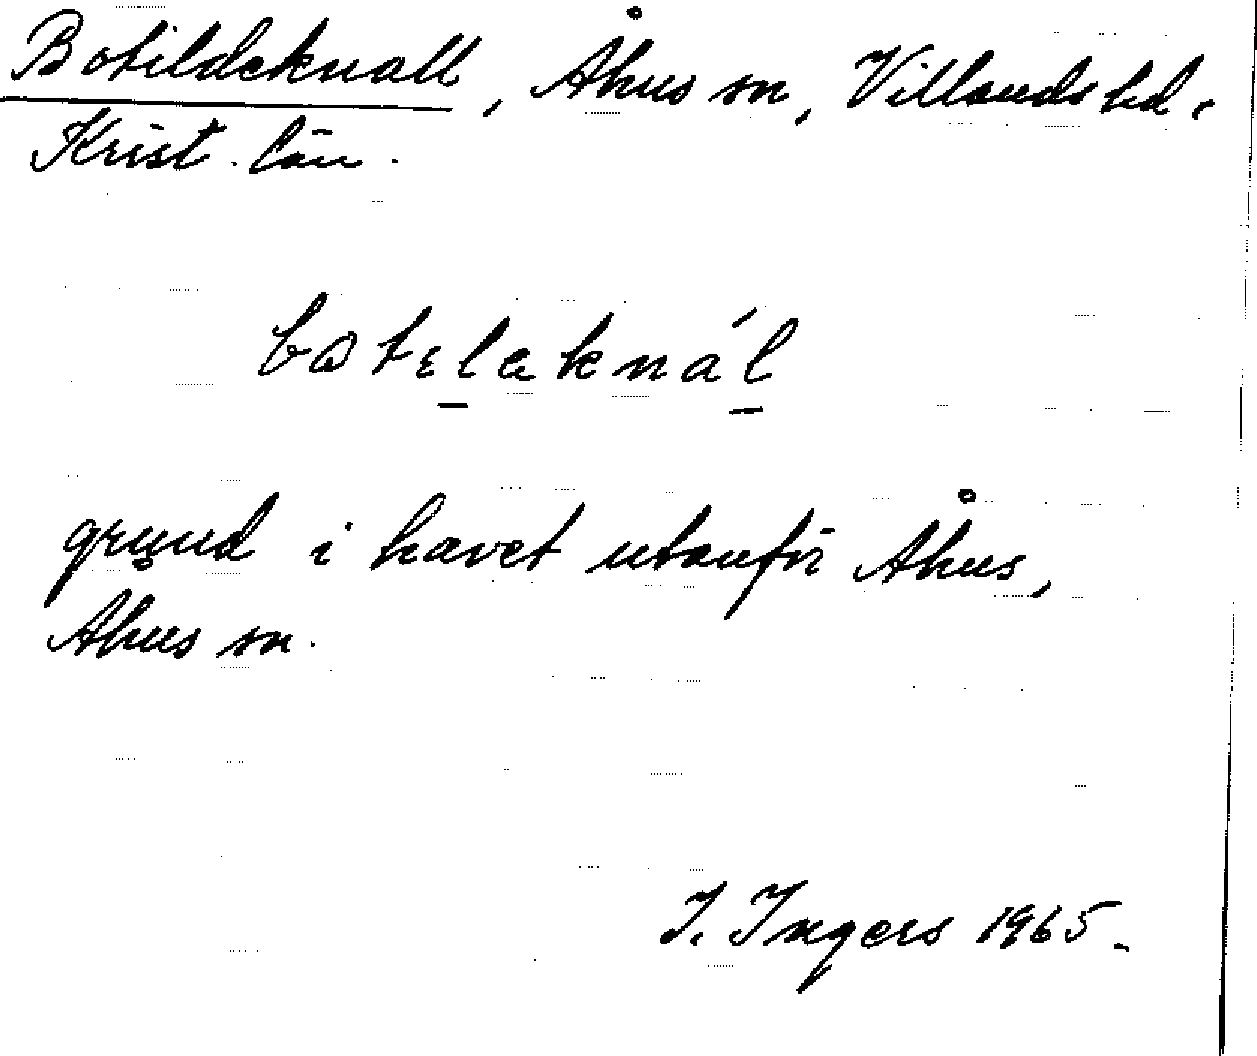 Botildeknall, Åhus sn, Villands hd,
Krist. län.
botɛlaknál
grund i havet utanför Åhus,
Åhus sn.
I. Ingers 1965.